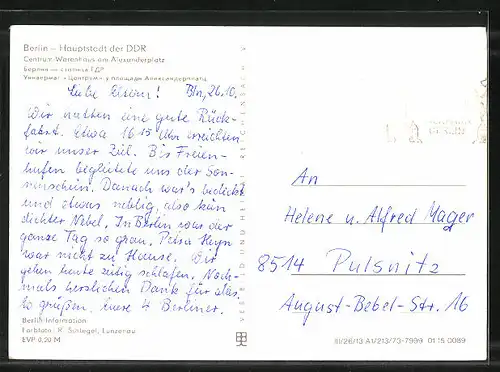 Berlin – Hauptstadt der DDR
Centrum-Warenhaus am Alexanderplatz
Берлин — столица ГДР
Универмаг «Центрум» у площади Александерплатц
Liebe Eltern! Bln, 26.10.
Wir hatten eine gute Rück-
fahrt. Etwa 16 15 Uhr erreichten
wir unser Ziel. Bis Freien-
hufen begleitete uns der Son-
nenschein. Danach war's bedeckt
und etwas neblig, also kein
dichter Nebel. In Berlin war der
ganze Tag so grau. Petra Heyn
war nicht zu Hause. Wir
gehen heute zeitig schlafen. Noch-
mals herzlichen Dank für alles.
Es grüßen Eure 4 Berliner.
Berlin-Information
Farbfoto: K. Schlegel, Lunzenau
EVP 0,20 M
VERLAG BILD UND HEIMAT REICHENBACH
An
Helene u. Alfred Mager
8514 Pulsnitz
August-Bebel-Str. 16
III/26/13 A1/213/73-7999 01 15 0089